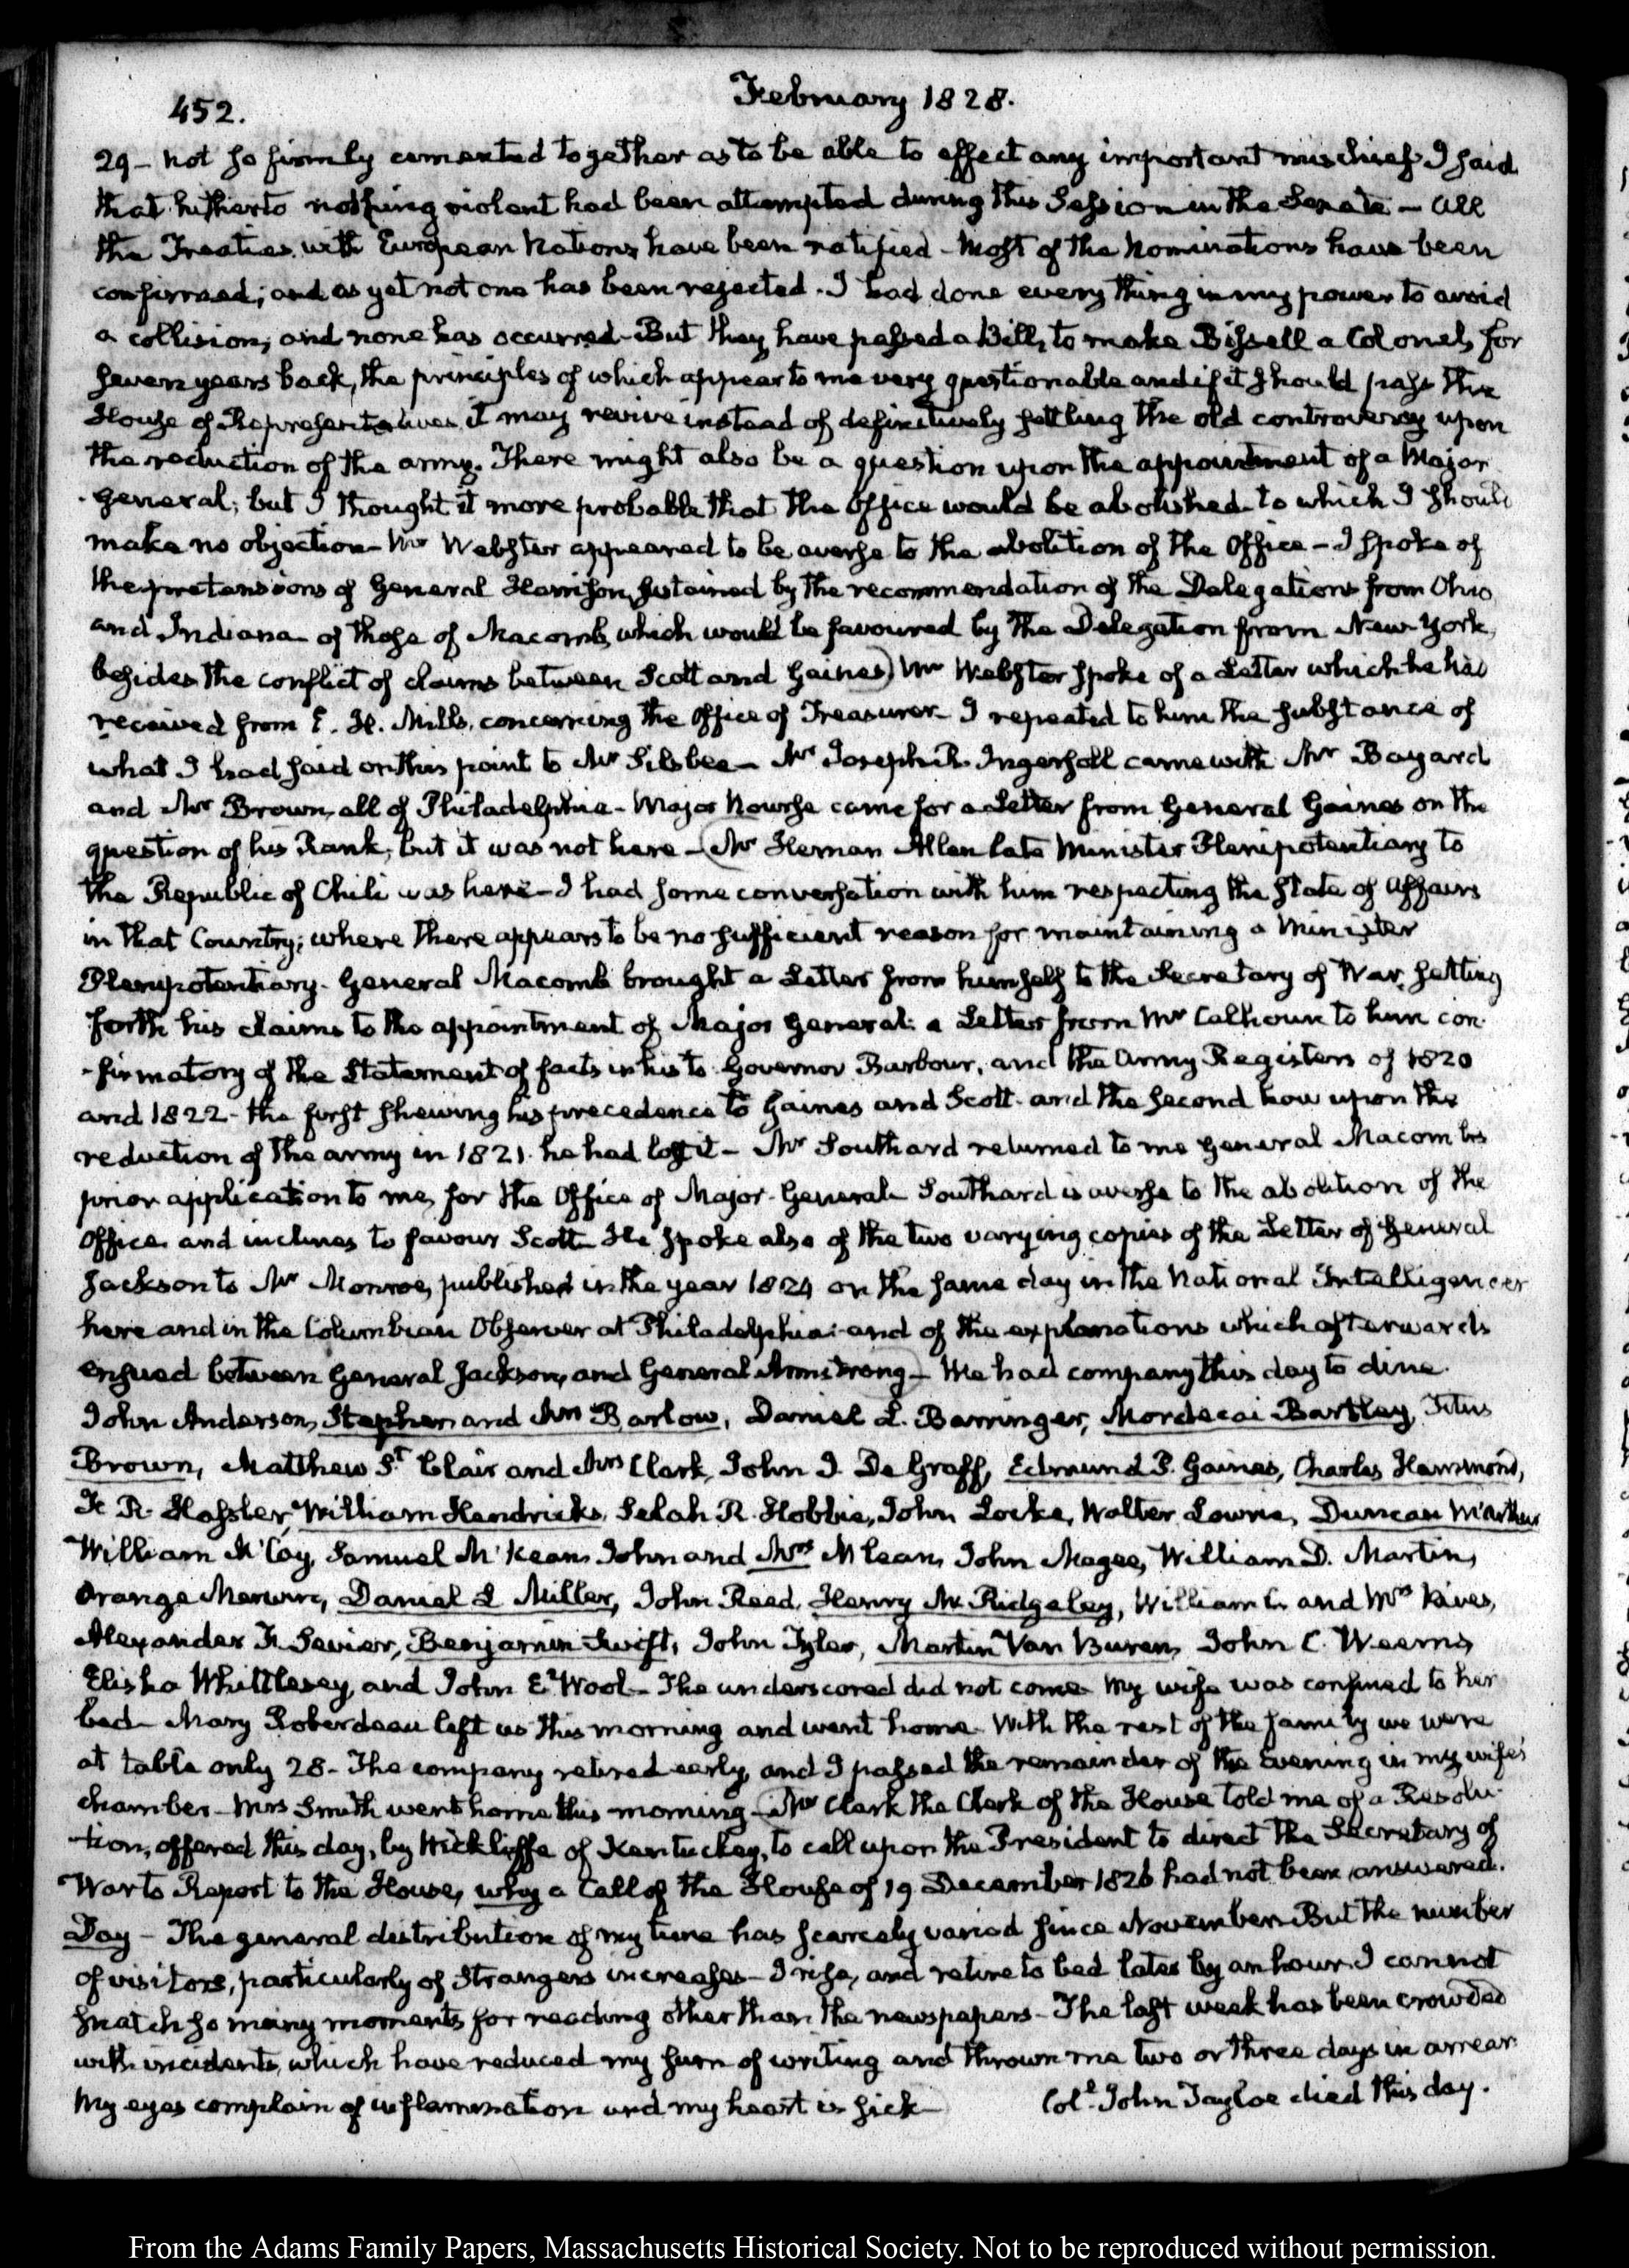 452.
February 1828.
29- not so firmly cemented together as to be able to effect any important mischief. I said
that hitherto nothing violent had been attempted during this Session in the Senate - All
the Treaties with European Nations have been ratified - Most of the Nominations have been
confirmed; and as yet not one has been rejected. I had done every thing in my power to avoid
a collision; and none has occurred - But they have passed a Bill, to make Bissell a Colonel, for
seven years back, the principles of which appear to me very questionable and if it should pass the
House of Representatives, it may revive instead of definitively settling the old controversy upon
the reduction of the army. There might also be a question upon the appointment of a Major
General; but I thought it more probable that the Office would be abolished to which I should
make no objection - Mr Webster appeared to be averse to the abolition of the Office - I spoke of
the pretensions of General Harrison, sustained by the recommendation of the Delegations from Ohio
and Indiana - of those of Macomb, which would be favoured by the Delegation from New-York,
besides the conflict of claims between Scott and Gaines) Mr Webster spoke of a Letter which he had
received from E. H. Mills, concerning the Office of Treasurer - I repeated to him the substance of
what I had said on this point to Mr Silsbee - Mr Joseph R. Ingersoll came with Mr Bayard
and Mr Brown, all of Philadelphia - Major Nourse came for a Letter from General Gaines on the
question of his Rank; but it was not here - (Mr Heman Allen late Minister Plenipotentiary to
the Republic of Chili was here - I had some conversation with him respecting the State of Affairs
in that Country; where there appears to be no sufficient reason for maintaining a Minister
Plenipotentiary - General Macomb brought a Letter from himself to the Secretary of War, setting
forth his claims to the appointment of Major General: a Letter from Mr Calhoun to him con-
-firmatory of the Statement of facts in his to Governor Barbour, and the Army Registers of 1820
and 1822 - the first shewing his precedence to Gaines and Scott - and the second how upon the
reduction of the army in 1821 he had lost it - Mr Southard returned to me General Macomb's
prior application to me, for the Office of Major-General - Southard is averse to the abolition of the
Office and inclines to favour Scott - He spoke also of the two varying copies of the Letter of General
Jackson to Mr Monroe, published in the year 1824 on the same day in the National Intelligencer
here and in the Columbian Observer at Philadelphia: and of the explanations which afterwards
ensued between General Jackson, and General Armstrong - We had company this day to dine.
John Anderson, Stephen and Mrs Barlow, Daniel L. Barringer, Mordecai Bartley, Titus
Brown, Matthew St Clair and Mrs Clark, John I. De Graff, Edmund P. Gaines, Charles Hammond,
F. R. Hassler, William Hendricks, Selah R. Hobbie, John Locke, Walter Lowrie, Duncan McArthur
William McCoy, Samuel McKean, John and Mrs McLean, John Magee, William D. Martin,
Orange Merwin, Daniel L Miller, John Reed, Henry M. Ridgeley, William C. and Mrs Rives,
Alexander H. Sevier, Benjamin Swift, John Tyler, Martin Van Buren, John C. Weems,
Elisha Whittlesey, and John E. Wool - The underscored did not come - My wife was confined to her
bed - Mary Roberdeau left us this morning and went home. With the rest of the family we were
at table only 28 - The company retired early, and I passed the remainder of the Evening in my wife's
chamber - Mrs Smith went home this morning - (Mr Clark the Clerk of the House told me of a Resolu-
-tion, offered this day, by Wickliffe of Kentuckey, to call upon the President to direct the Secretary of
War to Report to the House, why a Call of the House of 19 December 1826 had not been answered.
Day - The general distribution of my time has scarcely varied since November - But the number
of visitors, particularly of Strangers increases - I rise, and retire to bed later by an hour. I cannot
snatch so many moments for reading other than the newspapers - The last week has been crowded
with incidents, which have reduced my sum of writing and thrown me two or three days in arrear.
My eyes complain of inflammation and my heart is sick - Col. John Tayloe died this day.
From the Adams Family Papers, Massachusetts Historical Society. Not to be reproduced without permission.